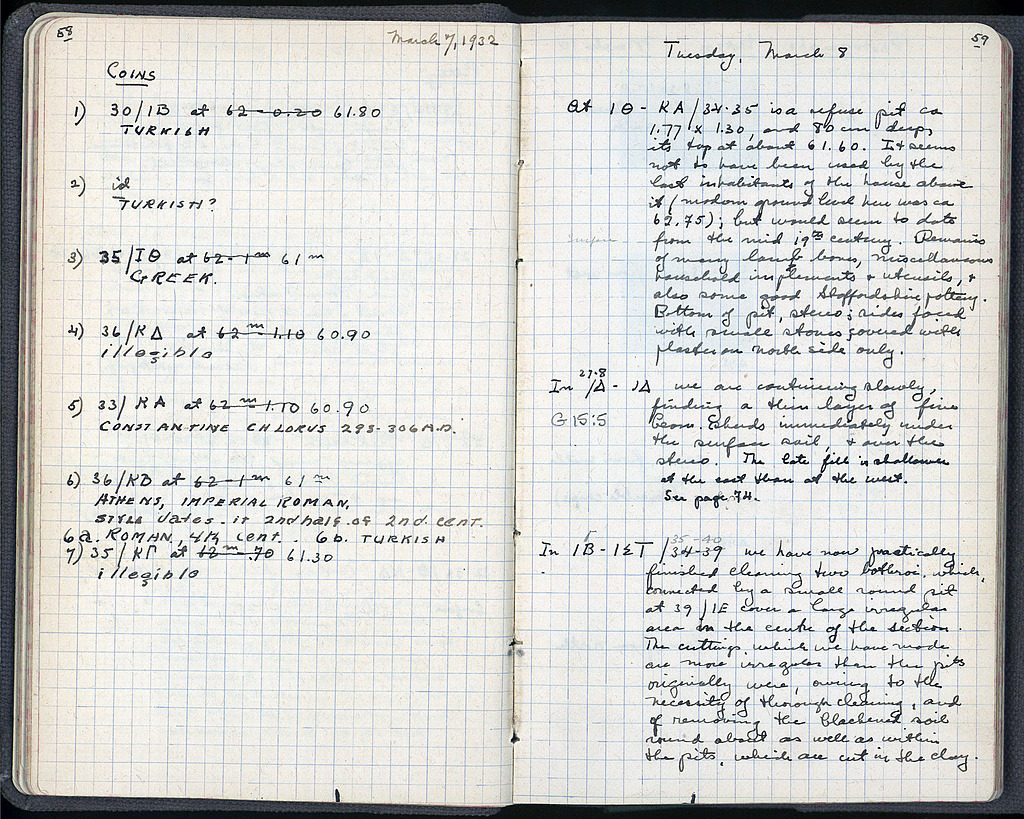 58
March 7, 1932
COINS
1) 30/IB at ~~62-0.20~~ 61.80
TURKISH
2) id
TURKISH?
3) 35/IΘ at ~~62-1m~~ 61m
GREEK.
4) 36/KΔ at ~~62m-1.10~~ 60.90
illegible
5) 33/KA at ~~62m-1.10~~ 60.90
CONSTANTINE CHLORUS 293-306 A.D.
6) 36/KB at ~~62-1m~~ 61m
ATHENS, IMPERIAL ROMAN,
STYLE dates it 2nd half of 2nd cent.
6a. ROMAN, 4th cent. 6b. TURKISH
7) 35/KΓ at ~~62m-70~~ 61.30
illegible
59
Tuesday, March 8
At IΘ-KA/34-35 is a refuse pit ca
1.77 x 1.30, and 80 cm deep,
its top at about 61.60. It seems
not to have been used by the
last inhabitants of the house above
it (modern ground level here was ca
62.75); but would seem to date
from the mid 19th century. Remains
of many lamb bones, miscellaneous
household implements & utensils, &
also some good Staffordshire pottery.
Bottom of pit, stereo; sides faced
with small stones covered with
plaster on north side only.
27.8
In /Δ-IΔ we are continuing slowly,
finding a thin layer of fine
G15:5
Geom. sherds immediately under
the surface soil, & over the
stereo. The late fill is shallower
at the east than at the west.
See page 74.
35-40
In IB-IΣT/34-39 we have now practically
finished cleaning two bothroi, which,
connected by a small round pit
at 39/IE cover a large irregular
area in the centre of the section.
The cuttings which we have made
are more irregular than the pits
originally were, owing to the
necessity of thorough cleaning, and
of removing the blackened soil
round about as well as within
the pits, which are cut in the clay.